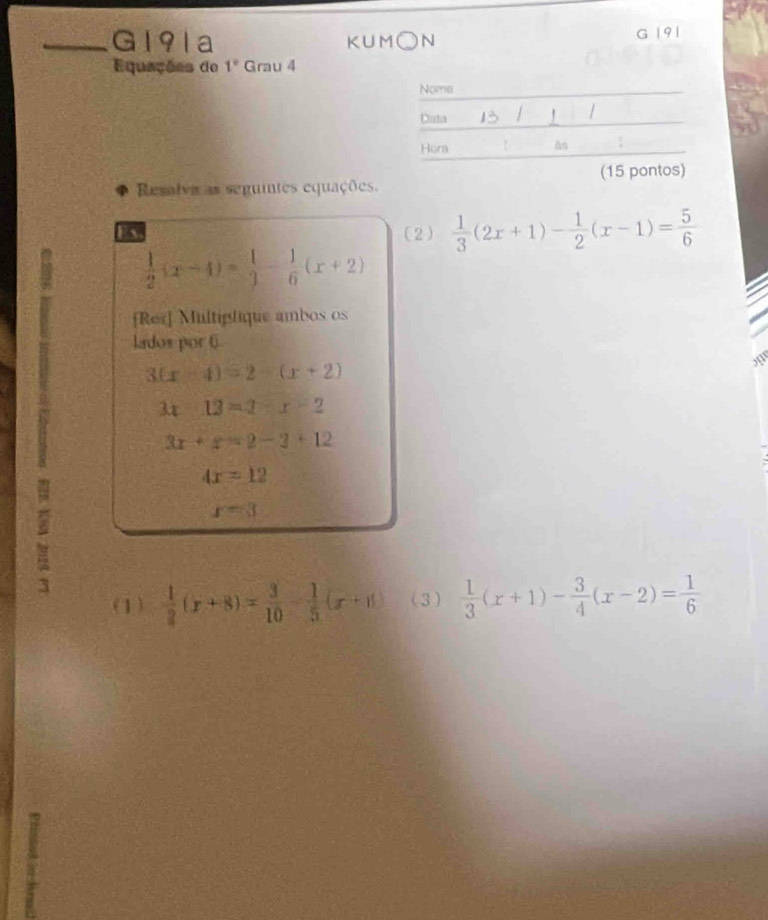 G191a
KUMON
G 191
Equações do 1° Grau 4
Nome
Data 13 / 1 /
Hora : às :
(15 pontos)
Resolva as seguintes equações.
Ex.
1/2 (x − 4) = 1/3 − 1/6 (x + 2)
[Res] Multiplique ambos os
lados por 6
3(x − 4) = 2 − (x + 2)
3x − 12 = 2 − x − 2
3x + x = 2 − 2 + 12
4x = 12
x = 3
(2) 1/3 (2x + 1) − 1/2 (x − 1) = 5/6
(1) 1/2 (x + 8) = 3/10 − 1/5 (x +
(3) 1/3 (x + 1) − 3/4 (x − 2) = 1/6